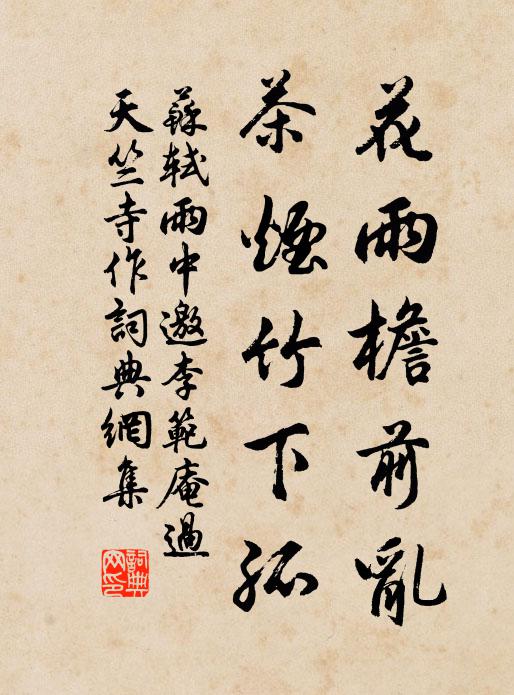 花雨檐前亂
茶煙竹下孤
蘇軾雨中邀李範庵過
天竺寺作詞典網集
詞典網印